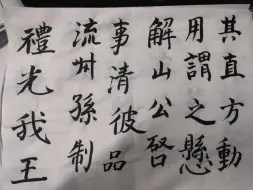 其直方動
用謂之懸
解山公啓
事清彼品
流州孫制
禮光我王